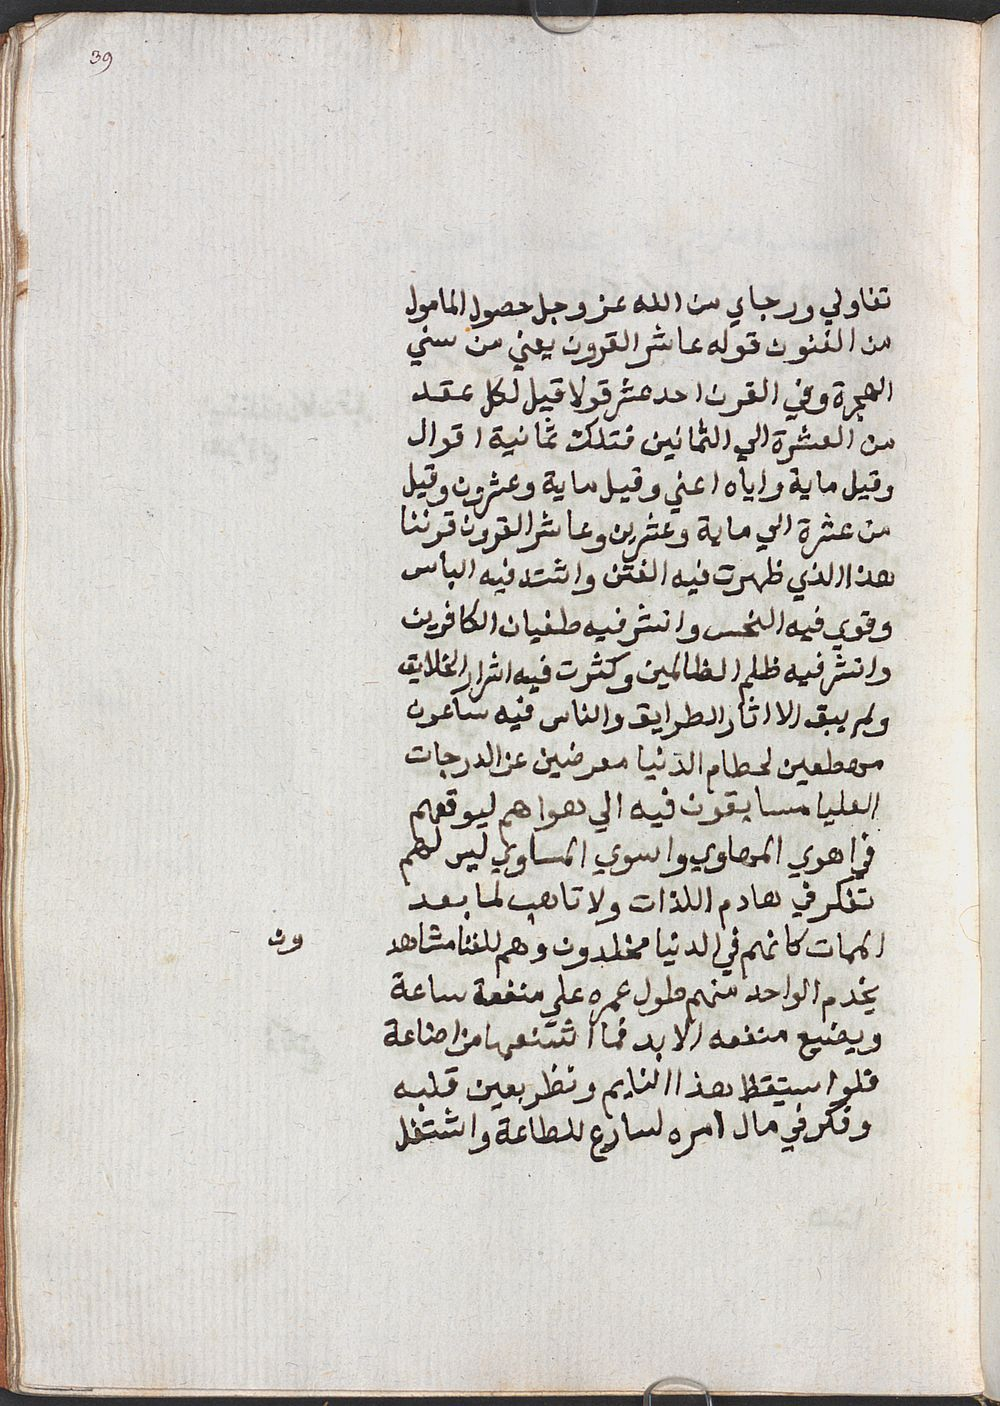 39
تفاولي ورجاي من الله عز وجل حصول المامول
من الفنون قوله عاشر القرون يعني من سني
الهجرة وفي القرن احد عشر قولا قيل لكل عقد
من العشرة الي الثمانين فتلك ثمانية اقوال
وقيل ماية واياه اعني وقيل ماية وعشرون وقيل
من عشرة الي ماية وعشرين وعاشر القرون قرننا
هذا الذي ظهرت فيه الفتن واشتد فيه الباس
وقوي فيه النحس وانتشر فيه طغيان الكافرين
وانتشر فيه ظلم الظالمين وكثرت فيه اشرار الخلايق
ولم يبق الا اثار الطرايق والناس فيه ساعون
مهطعين لحطام الدنيا معرضين عن الدرجات
العليا مسابقون فيه الي هواهم ليوقعهم
في اهوي المهاوي واسوي المساوي ليس لهم
تفكر في هادم اللذات ولا تاهب لما بعد
الممات كانهم في الدنيا مخلدون وهم للفنا مشاهد
ون
يخدم الواحد منهم طول عمره علي منفعة ساعة
ويضيع منفعه الابد فما اشنعها من اضاعة
فلو استيقظ هذا النايم ونظر بعين قلبه
وفكر في مال امره لسارع للطاعة واشتغل